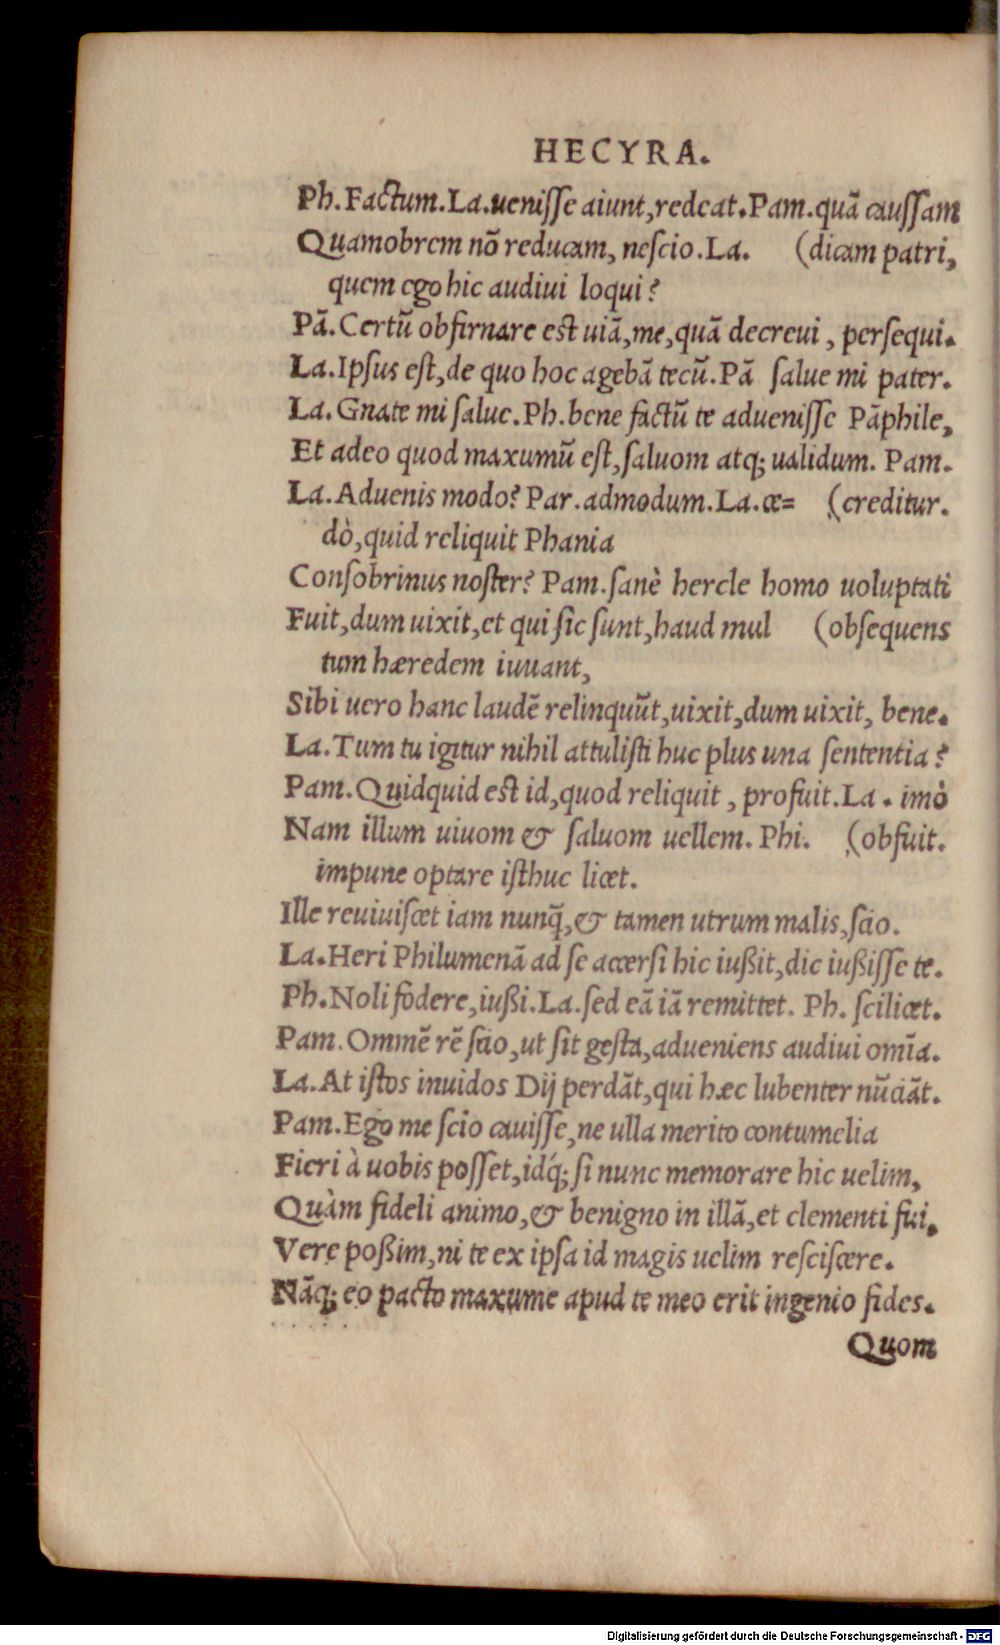 HECYRA.
Ph. Factum. La. ueniſſe aiunt, redeat. Pam. quā cauſſam
Quamobrem nō reducam, neſcio. La. (dicam patri,
quem ego hic audiui loqui?
Pā. Certū obfirnare eſt uiā, me, quā decreui, perſequi.
La. Ipſus eſt, de quo hoc agebā tecū. Pā ſalue mi pater.
La. Gnate mi ſalue. Ph. bene factū te adueniſſe Pāphile,
Et adeo quod maxumū eſt, ſaluom atq; ualidum. Pam.
La. Aduenis modo? Par. admodum. La. œ= (creditur.
dò, quid reliquit Phania
Conſobrinus noſter? Pam. ſanè hercle homo uoluptati
Fuit, dum uixit, et qui ſic ſunt, haud mul (obſequens
tum hæredem iuuant,
Sibi uero hanc laudē relinquūt, uixit, dum uixit, bene.
La. Tum tu igitur nihil attuliſti huc plus una ſententia?
Pam. Quidquid eſt id, quod reliquit, profuit. La. imò
Nam illum uiuom & ſaluom uellem. Phi. (obfuit.
impune optare iſthuc licet.
Ille reuiuiſcet iam nunq̄, & tamen utrum malis, ſcio.
La. Heri Philumenā ad ſe accerſi hic iußit, dic iußiſſe te.
Ph. Noli fodere, iußi. La. ſed eā iā remittet. Ph. ſcilicet.
Pam. Ommē rē ſcio, ut ſit geſta, adueniens audiui omīa.
La. At iſtos inuidos Dij perdāt, qui hæc lubenter nūciāt.
Pam. Ego me ſcio cauiſſe, ne ulla merito contumelia
Fieri à uobis poſſet, idq́; ſi nunc memorare hic uelim,
Quàm fideli animo, & benigno in illā, et clementi fui,
Vere poßim, ni te ex ipſa id magis uelim reſciſcere.
Nāq; eo pacto maxume apud te meo erit ingenio fides.
Quom
Digitalisierung gefördert durch die Deutsche Forschungsgemeinschaft - DFG